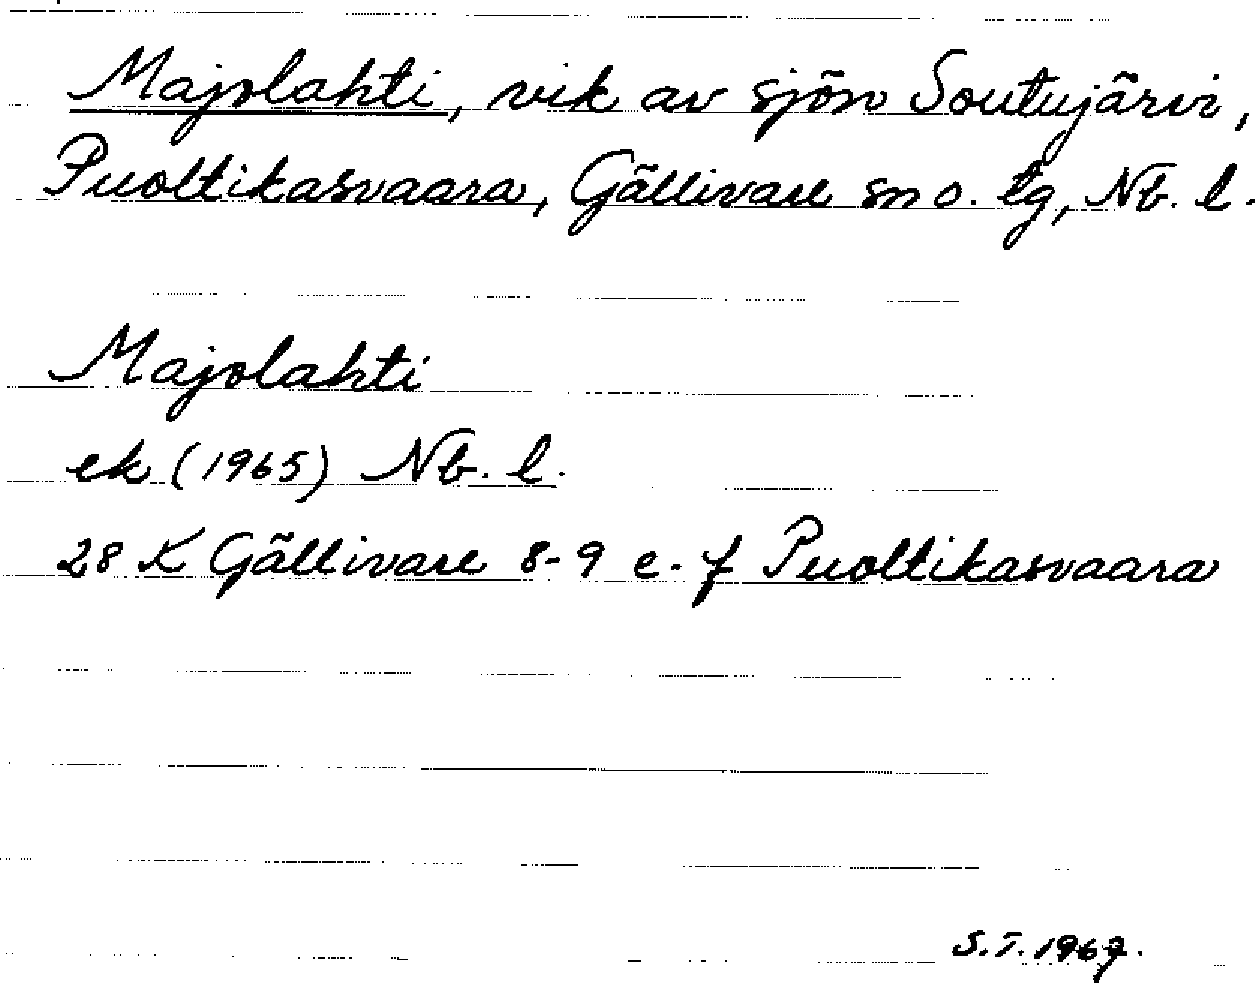 Majolahti, vik av sjön Soutujärvi,
Puoltikasvaara, Gällivare sn o. tg, Nb. l.
Majolahti
ek (1965) Nb. l.
28 K Gällivare 8-9 e-f Puoltikasvaara
S.T. 1967.